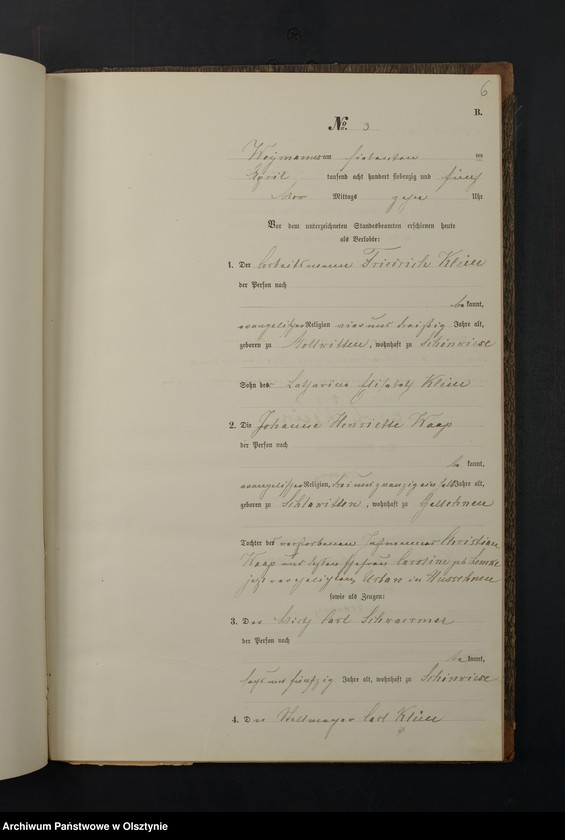 6
B.
№ 3
Woymanns am siebenten
April tausend acht hundert siebenzig und fünf
Vor Mittags zehn Uhr
Vor dem unterzeichneten Standesbeamten erschienen heute
als Verlobte:
1. Der Arbeitsmann Friedrich Klein
der Person nach
be kannt,
evangelischer Religion vier und dreißig Jahre alt,
geboren zu Rollwitten, wohnhaft zu Schönwiese
Sohn der Catharina Elisabeth Klein
2. Die Johanne Henriette Kaap
der Person nach
be kannt,
evangelischer Religion, drei und zwanzig ein halb Jahre alt,
geboren zu Schlawitten, wohnhaft zu
Tochter des verstorbenen Christian
Kaap und dessen Ehefrau Caroline geb. Lemke
jetzt verehelichten Urban in Wusslehnen
sowie als Zeugen:
3. Der Wirth Carl Schwermer
der Person nach
be kannt,
sechs und fünfzig Jahre alt, wohnhaft zu Schönwiese
4. Der Stellmacher Carl Klein
Archiwum Państwowe w Olsztynie